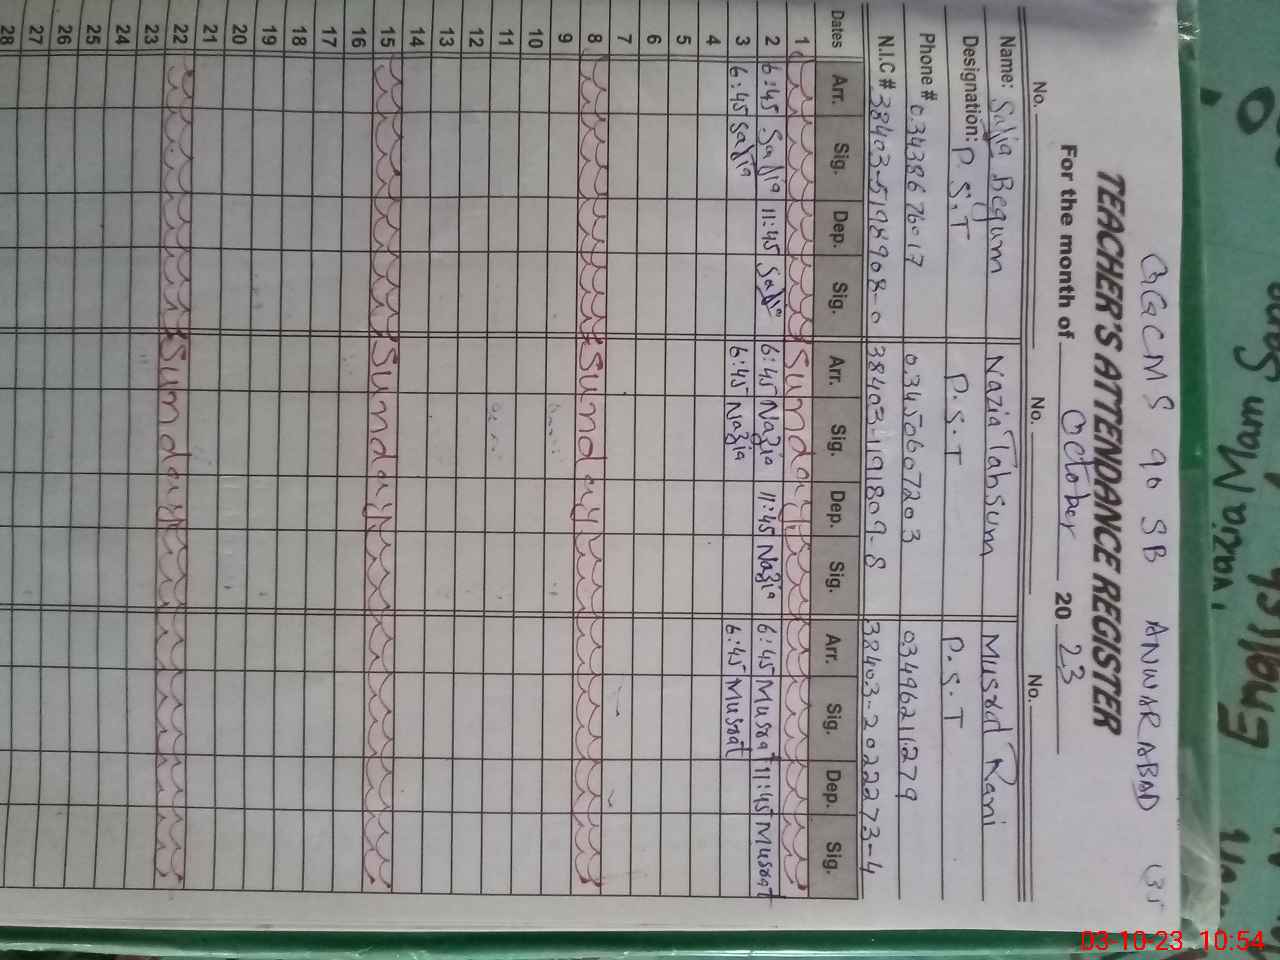 GGCMS 90 SB ANWARABAD
TEACHER'S ATTENDANCE REGISTER
For the month of October 2023
No. No. No.
Name: Safia Begum Nazia Tabsum Musrat Rani
Designation: P.S.T P.S.T P.S.T
Phone # 03438676017 03450607203 03496211279
N.I.C # 38403-5198908-0 38403-1191809-8 38403-2022273-4
Dates Arr. Sig. Dep. Sig. Arr. Sig. Dep. Sig. Arr. Sig. Dep. Sig.
1 Sunday
2 6:45 Safia 11:45 Safia 6:45 Nazia 11:45 Nazia 6:45 Musrat 11:45 Musrat
3 6:45 Safia 6:45 Nazia 6:45 Musrat
4
5
6
7
8 Sunday
9
10
11
12
13
14
15 Sunday
16
17
18
19
20
21
22 Sunday
23
24
25
26
27
28
03-10-23 10:54